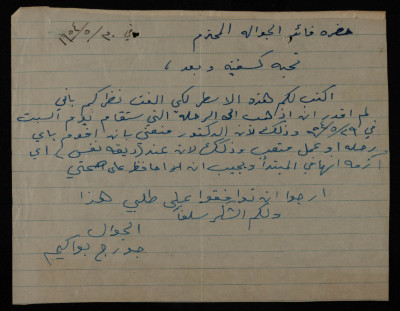 ١٩٥٤/٥/٢٠
حضرة قائم الجواله المحترم
تحيه كشفيه وبعد ،
اكتب لكم هذه الاسطر لكي الفت نظركم باني
لم اقدر ان اذهب الى الرحلة التي ستقام يوم السبت
في ٢٩/٥/ وذلك لأن الدكتور منعني بان اقوم باي
رحله او عمل متعب وذلك لان عندي ضيقه نفس
ازمه انها في المبتدأ ويجب ان احافظ على صحتي
ارجوا ان توافقوا على طلبي هذا
ولكم الشكر سلفاً
الجوال
جورج بواكيم